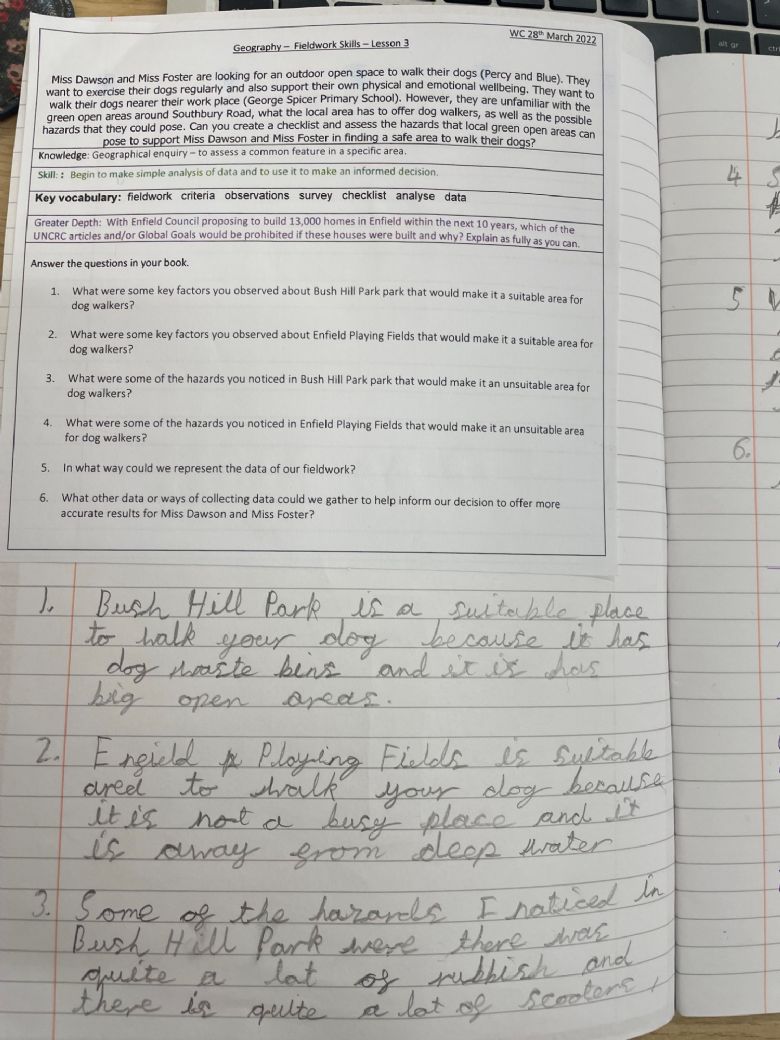 WC 28th March 2022
Geography – Fieldwork Skills – Lesson 3
Miss Dawson and Miss Foster are looking for an outdoor open space to walk their dogs (Percy and Blue). They
want to exercise their dogs regularly and also support their own physical and emotional wellbeing. They want to
walk their dogs nearer their work place (George Spicer Primary School). However, they are unfamiliar with the
green open areas around Southbury Road, what the local area has to offer dog walkers, as well as the possible
hazards that they could pose. Can you create a checklist and assess the hazards that local green open areas can
pose to support Miss Dawson and Miss Foster in finding a safe area to walk their dogs?
Knowledge: Geographical enquiry – to assess a common feature in a specific area.
Skill: : Begin to make simple analysis of data and to use it to make an informed decision.
Key vocabulary: fieldwork criteria observations survey checklist analyse data
Greater Depth: With Enfield Council proposing to build 13,000 homes in Enfield within the next 10 years, which of the
UNCRC articles and/or Global Goals would be prohibited if these houses were built and why? Explain as fully as you can.
Answer the questions in your book.
1. What were some key factors you observed about Bush Hill Park park that would make it a suitable area for
dog walkers?
2. What were some key factors you observed about Enfield Playing Fields that would make it a suitable area for
dog walkers?
3. What were some of the hazards you noticed in Bush Hill Park park that would make it an unsuitable area for
dog walkers?
4. What were some of the hazards you noticed in Enfield Playing Fields that would make it an unsuitable area
for dog walkers?
5. In what way could we represent the data of our fieldwork?
6. What other data or ways of collecting data could we gather to help inform our decision to offer more
accurate results for Miss Dawson and Miss Foster?
1. Bush Hill Park is a suitable place
to walk your dog because it has
dog waste bins and it is has
big open areas.
2. Enfield Playing Fields is suitable
area to walk your dog because
it is not a busy place and it
is away from deep water
3. Some of the hazards I noticed in
Bush Hill Park were there was
quite a lot of rubbish and
there is quite a lot of scooters
4
5
6.
alt gr